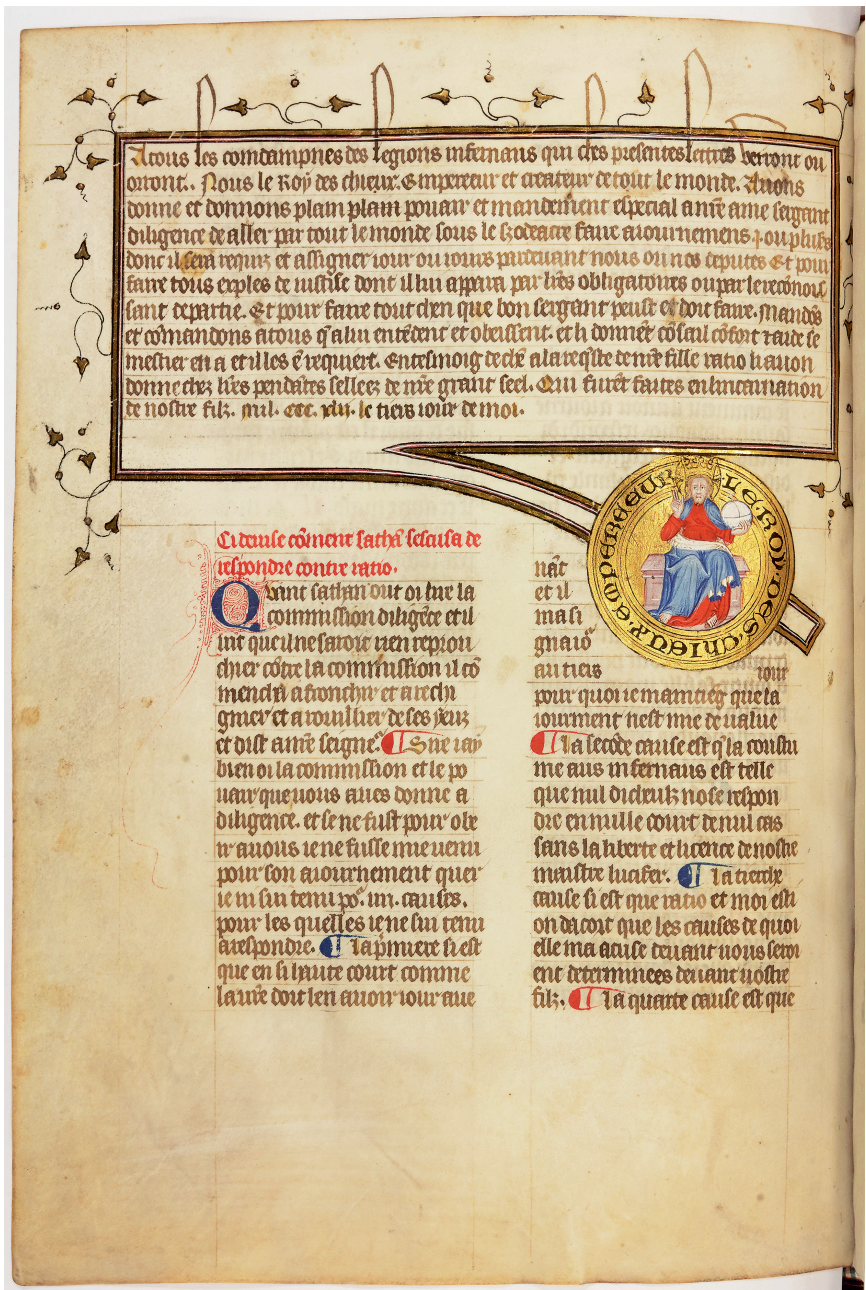 Atous les comdampnes des legions infernaus qui ches presentes lettres verront ou
orront. Nous le Roy des chieux. Empereeur et createur de tout le monde. Avons
donne et donnons plain plain pouair et mandement especial a nr̄e ame sergant
diligence de aller par tout le monde sous le zodeacre faire aiournemens .j. ou plus̄
donc il sera requiz et assigner iour ou iours pardevant nous ou nos deputes Et pour
faire tous exples de iustise dont il lui appara par lr̄es obligatoires ou par le recōnois
sant de partie. Et pour faire tout chen que bon sergant peust et doit faire. Mandōs
et cōmandons atous q̄ alui entēdent et obeissent. et li donnēt cōsail cōfort
mestier en a et il les ē requiert. En tesmoig de chē ala req̄ste de nr̄e fille ratio li avon
donne chez lr̄es pendātes sellees de nr̄e grant seel. Qui furēt faites en lincarnation
de nostre filz. mil. ccc. le tiers iour de moi.
LE ROY DES CHIEUX EMPEREEUR
Ci devise cōment sathā sescusa de
respondre contre ratio.
Quant sathan out oi lire la
commission diligēce et il
vit que il ne savoit rien reprou
chier cōtre la commission il cō
mencha a fronchir et a rechi
gnier et a rouillier de ses yeuz
et dist a mr̄e seignē. ¶ Sire iay
bien oi la commission et le po
vair que vous aves donne a
diligence. et se ne fust pour obe
ir a vous ie ne fusse mie venu
pour son aiournement quer
ie ni sui tenu po᷑ .iiii. causes.
pour les quelles ie ne sui tenu
a respondre. ¶ La p̄miere si est
que en si haute court comme
la vr̄e doit len avoir iour ave
nāt
et il
ma si
gnaiō
au tiers iour
pour quoi ie maintiēg que la
iourment nest mie de value
¶ La secōde cause est q̄ la coustu
me aus infernaus est telle
que nul dicheulz nose respon
dre en nulle court de nul cas
sans la liberte et licence de nostre
maistre lucifer. ¶ La tierche
cause si est que ratio et moi esti
on dacort que les causes de quoi
elle ma acuse devant vous seroi
ent determinees devant vostre
filz. ¶ La quarte cause est que